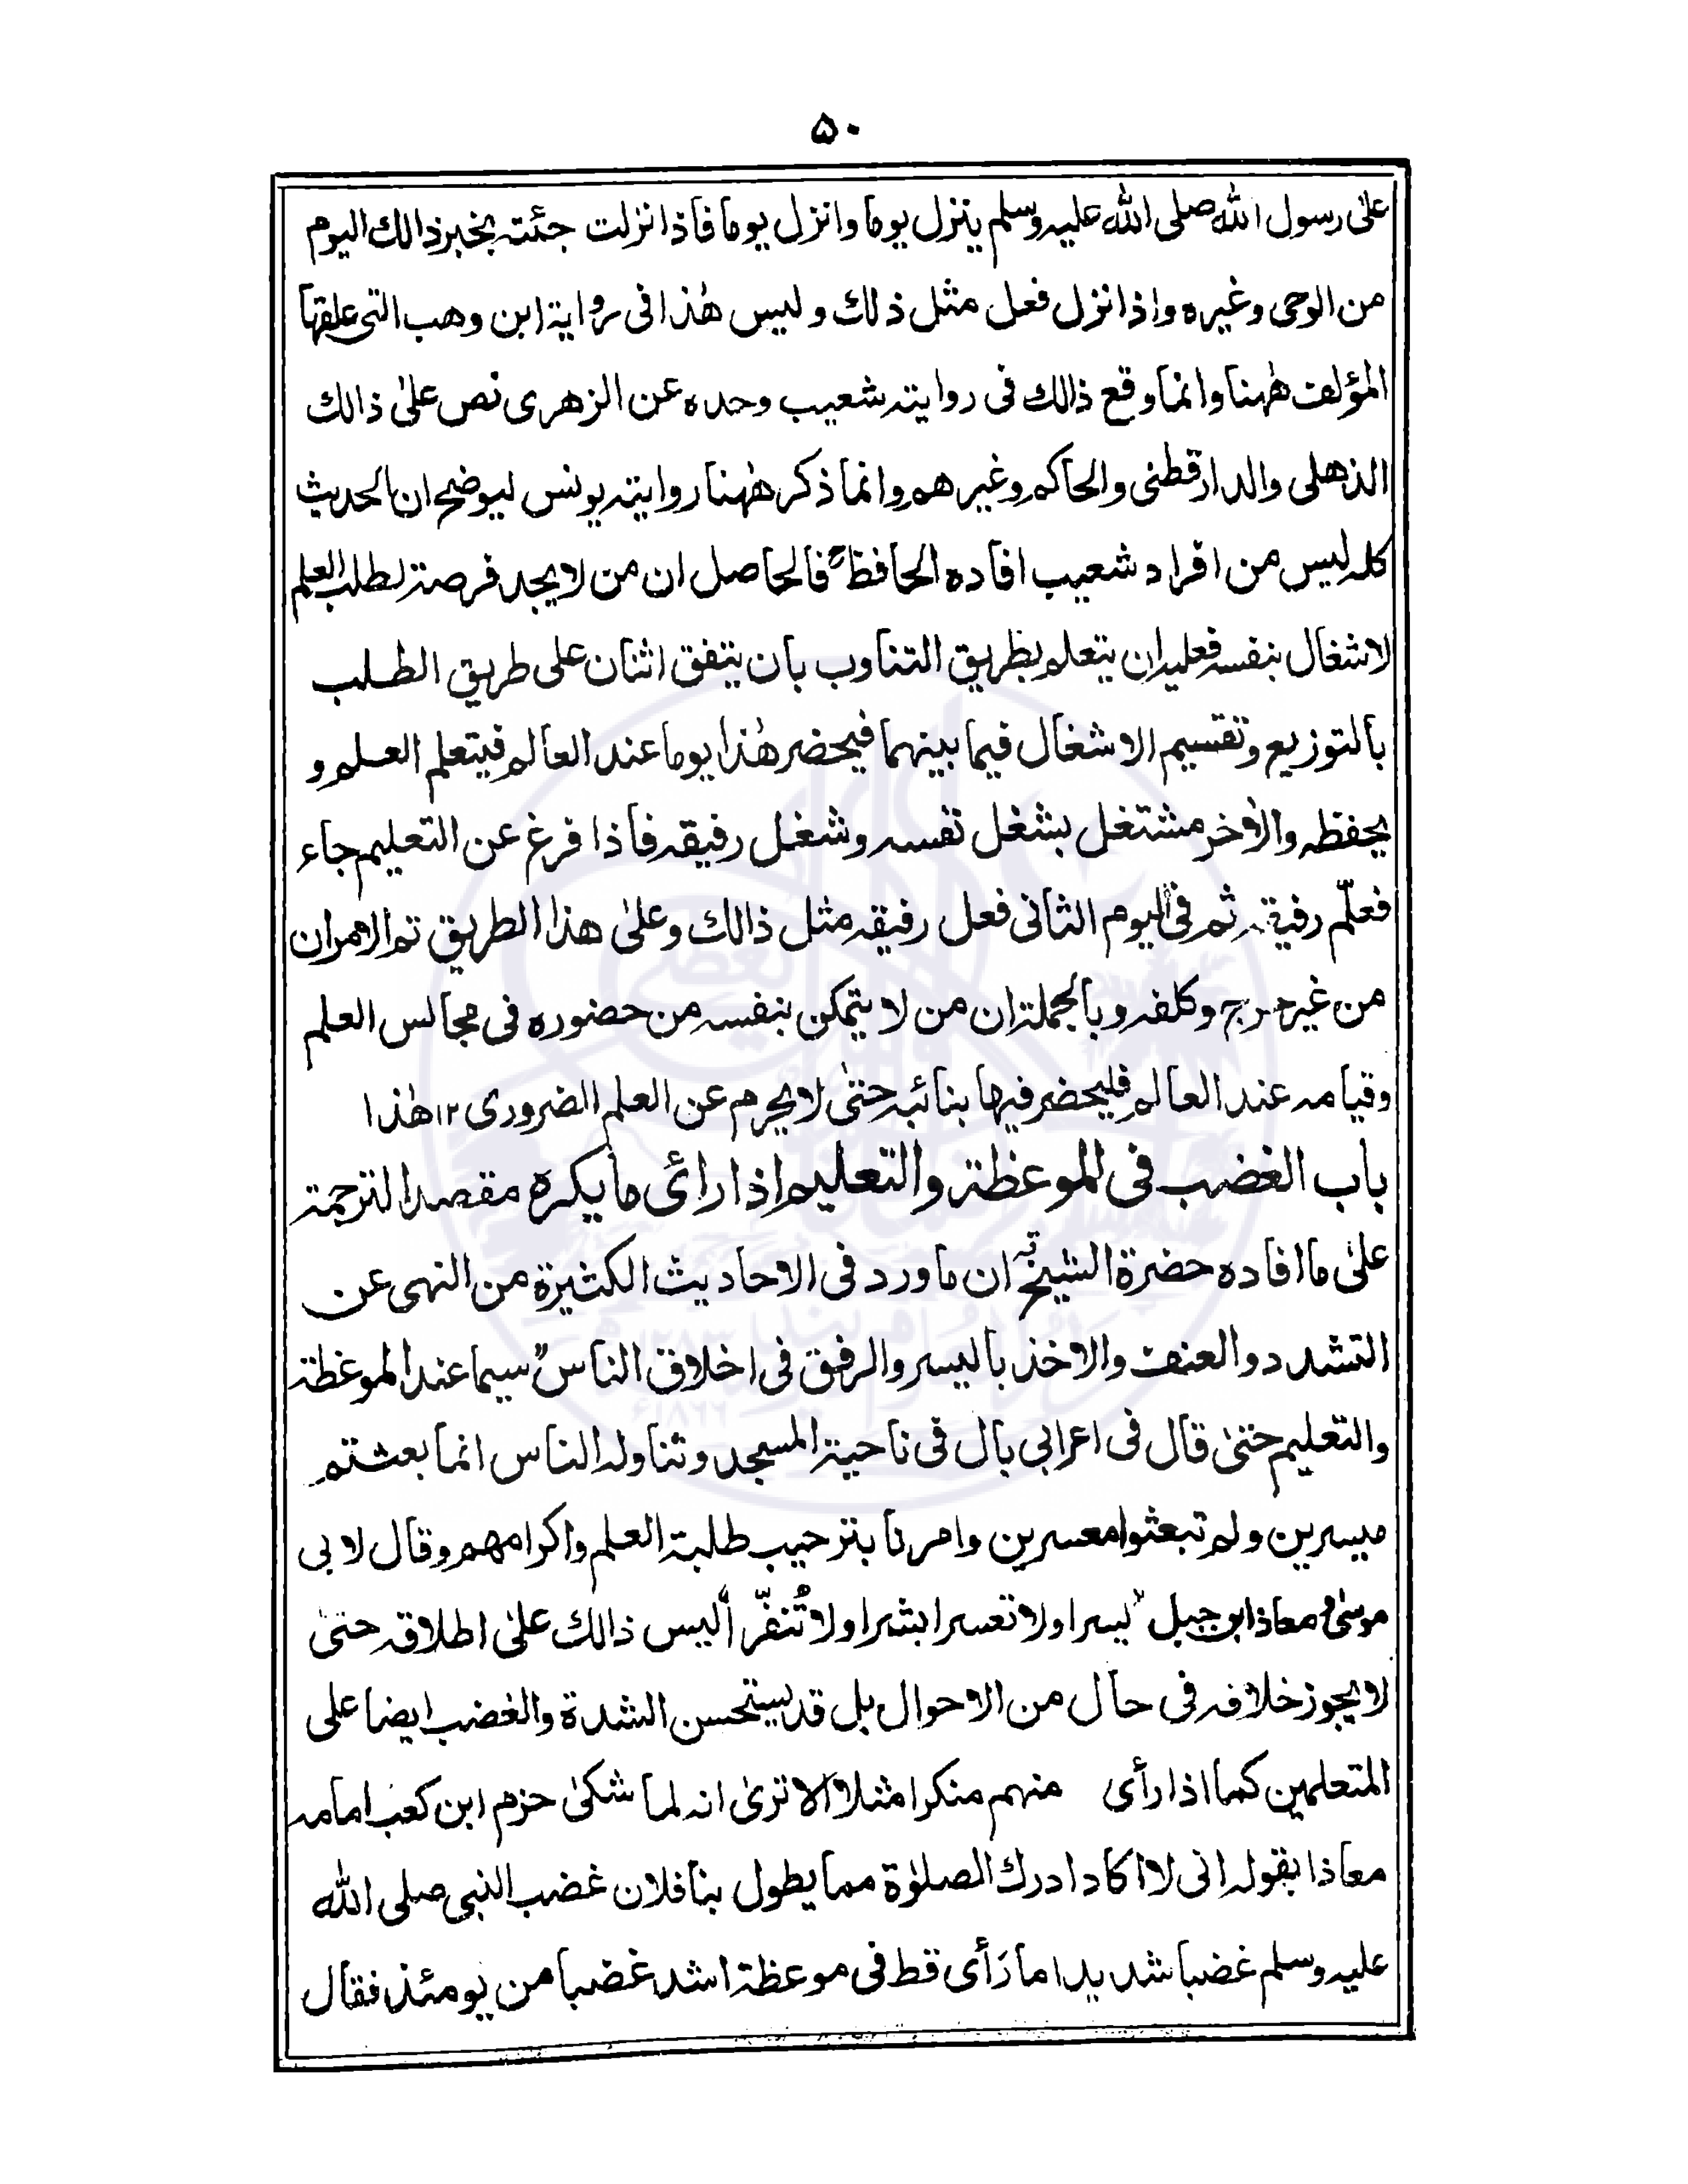 ۵۰
علی رسول الله صلی الله علیہ وسلم ینزل یوما وانزل یوما فاذا نزلت جئتہ بخبر ذالك الیوم
من الوحی وغیرہ واذا نزل فعل مثل ذلك ولیس ھٰذا فی روایۃ ابن وھب التی علقھا
المؤلف ھٰھنا وانما وقع ذالك فی روایتہ شعیب وحدہ عن الزھری نص علیٰ ذالك
الذھلی والدارقطنی والحاکم وغیرھم وانما ذکر ھٰھنا روایتہ یونس لیوضح ان الحدیث
کلہ لیس من افراد شعیب افادہ الحافظؒ فالحاصل ان من لا یجد فرصۃ لطلب العلم
لاشغال بنفسہ فعلیہ ان یتعلم بطریق التناوب بان یتفق اثنان علی طریق الطلب
بالتوزیع وتقسیم الاشغال فیما بینھما فیحضر ھٰذا یوما عند العالم فیتعلم العلم و
یحفظہ والاٰخر مشتغل بشغل نفسہ وشغل رفیقہ فاذا فرغ عن التعلیم جاء
فعلّم رفیقہ ثم فی الیوم الثانی فعل رفیقہ مثل ذالك وعلیٰ ھذا الطریق تم الامران
من غیر حرج وکلفہ وبالجملۃ ان من لا یتمکن بنفسہ من حضورہ فی مجالس العلم
وقیامہ عند العالم فلیحضر فیھا بنائبہ حتیٰ لا یحرم عن العلم الضروری ۱۲ ھٰذا
باب الغضب فی الموعظۃ والتعلیم اذا رائ ما یکرہ مقصد الترجمۃ
علیٰ ما افادہ حضرۃ الشیخؒ ان ما ورد فی الاحادیث الکثیرۃ من النھی عن
التشدد والعنف والاخذ بالیسر والرفق فی اخلاق الناس سیما عند الموعظۃ
والتعلیم حتیٰ قال فی اعرابی بال فی ناحیۃ المسجد وتناولہ الناس انما بعثتم
میسرین ولم تبعثوا معسرین وامرنا بترحیب طلبۃ العلم واکرامھم وقال لابی
موسیٰ ومعاذ ابن جبل یسرا ولا تعسرا بشرا ولا تُنفّرا لیس ذالك علیٰ اطلاقہ حتیٰ
لا یجوز خلافہ فی حال من الاحوال بل قد یستحسن الشدۃ والغضب ایضا علی
المتعلمین کما اذا رأی منھم منکرا مثلا الا تریٰ انہ لما شکیٰ حزم ابن کعب امامہ
معاذا بقولہ انی لا اکاد ادرك الصلوٰۃ مما یطول بنا فلان غضب النبی صلی الله
علیہ وسلم غضبا شدیدا ما رَأی قط فی موعظۃ اشد غضبا من یومئذ فقال